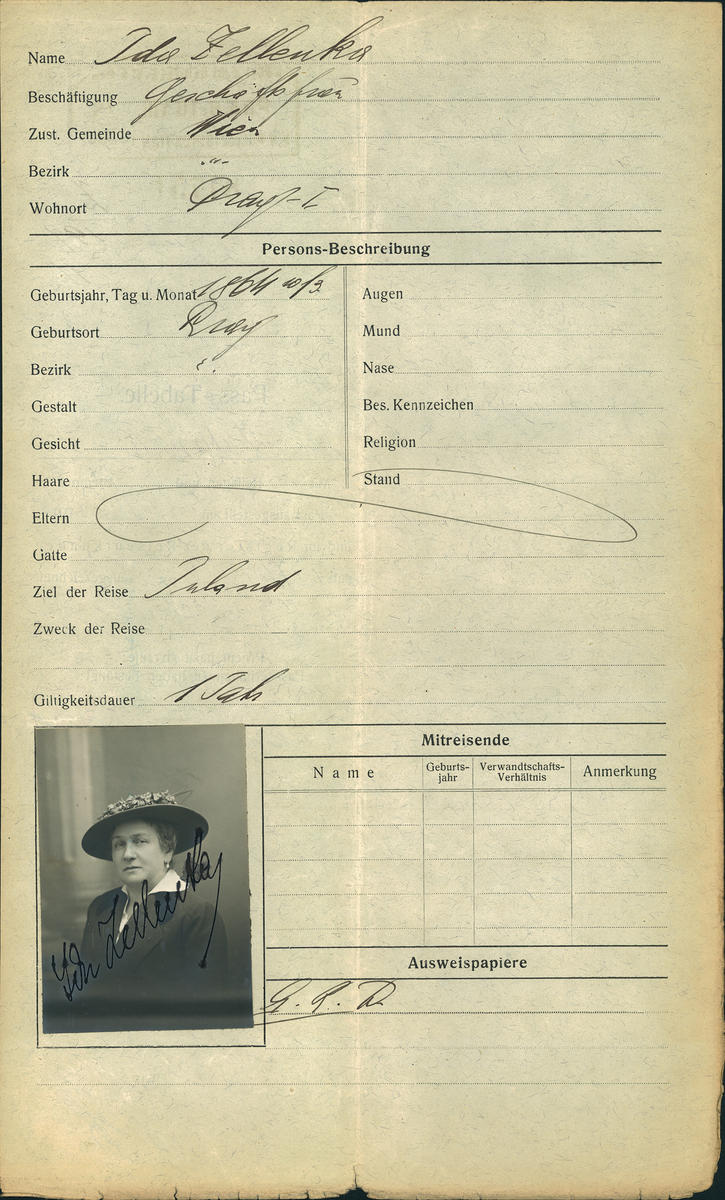 Name Ida Zellenka
Beschäftigung Geschäftsfrau
Zust. Gemeinde Wien
Bezirk -"-
Wohnort Prag-I
Persons-Beschreibung
Geburtsjahr, Tag u. Monat 1864 10/3
Geburtsort Prag
Bezirk
Gestalt
Gesicht
Haare
Augen
Mund
Nase
Bes. Kennzeichen
Religion
Stand
Eltern
Gatte
Ziel der Reise Inland
Zweck der Reise
Giltigkeitsdauer 1 Jahr
Ida Zellenka
Mitreisende
Name Geburts-jahr Verwandtschafts-Verhältnis Anmerkung
Ausweispapiere
Pass-Tabelle